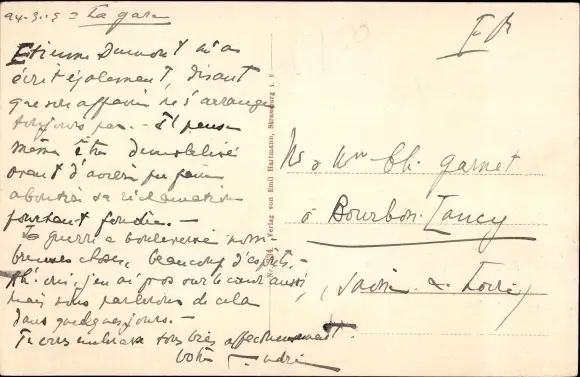 24-3-19 = La gare
Etienne Dumont m'a
écrit également, disant
que son affaire ne s'arrange
toujours pas. - Il pense
même être démobilisé
avant d'avoir pu faire
aboutir sa réclamation
pourtant fondée. -
La guerre a bouleversé
bien des choses, beaucoup d'esprits. -
Ah! oui, j'en ai gros sur le cœur aussi,
mais nous parlerons de cela
dans quelques jours. -
Je vous embrasse tous bien affectueusement.
Votre
F M
Mr & Mme Ch. Garnet
à Bourbon-Lancy
(Saône & Loire)
Verlag von Emil Hartmann, Strassburg i. E